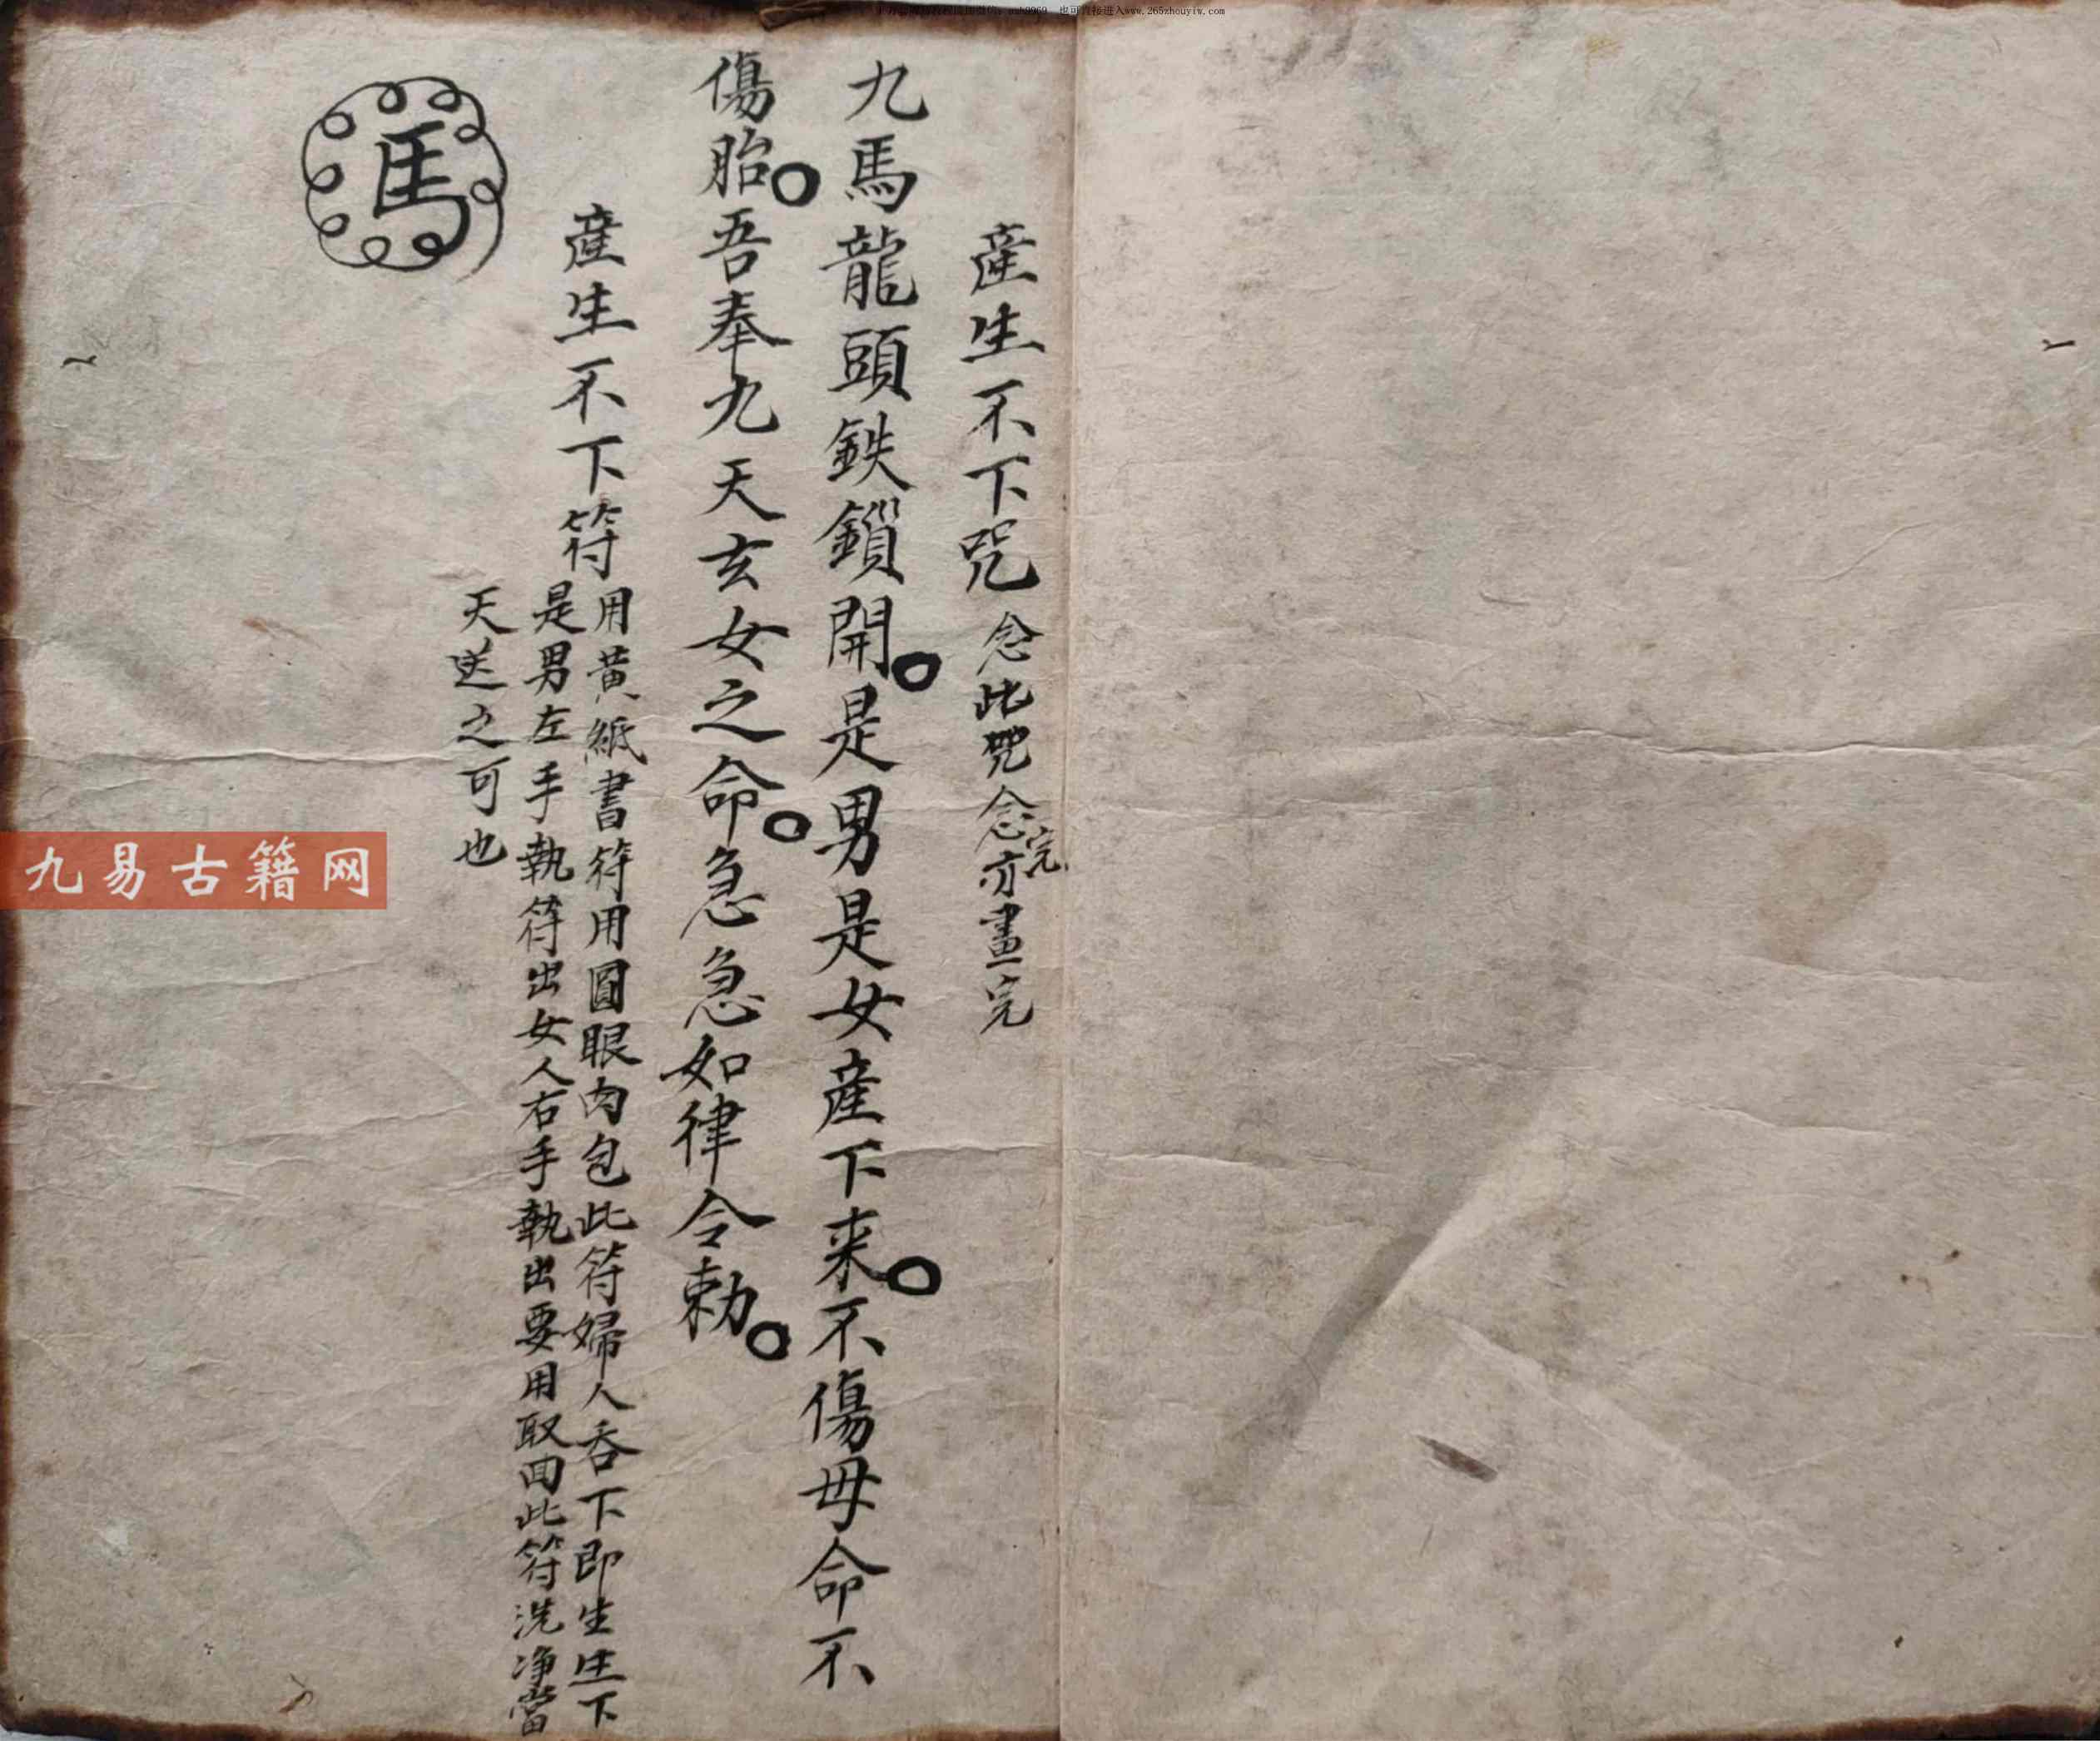 產生不下咒 念此咒念完亦畫完
九馬龍頭鉄鎖開。是男是女產下来。不傷母命不
傷胎。吾奉九天玄女之命。急急如律令勅。
產生不下符
用黃紙書符用圓眼肉包此符婦人吞下即生生下
是男左手執符出女人右手執出要用取回此符洗净當
天送之可也
馬
九易古籍网
也可直接进入www.265zhouyiw.com